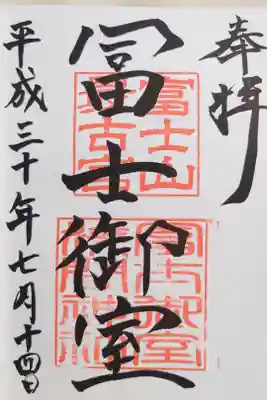 奉拝
冨士御室
富士山
最古宮
冨士御室
浅間神社
平成三十年七月十四日